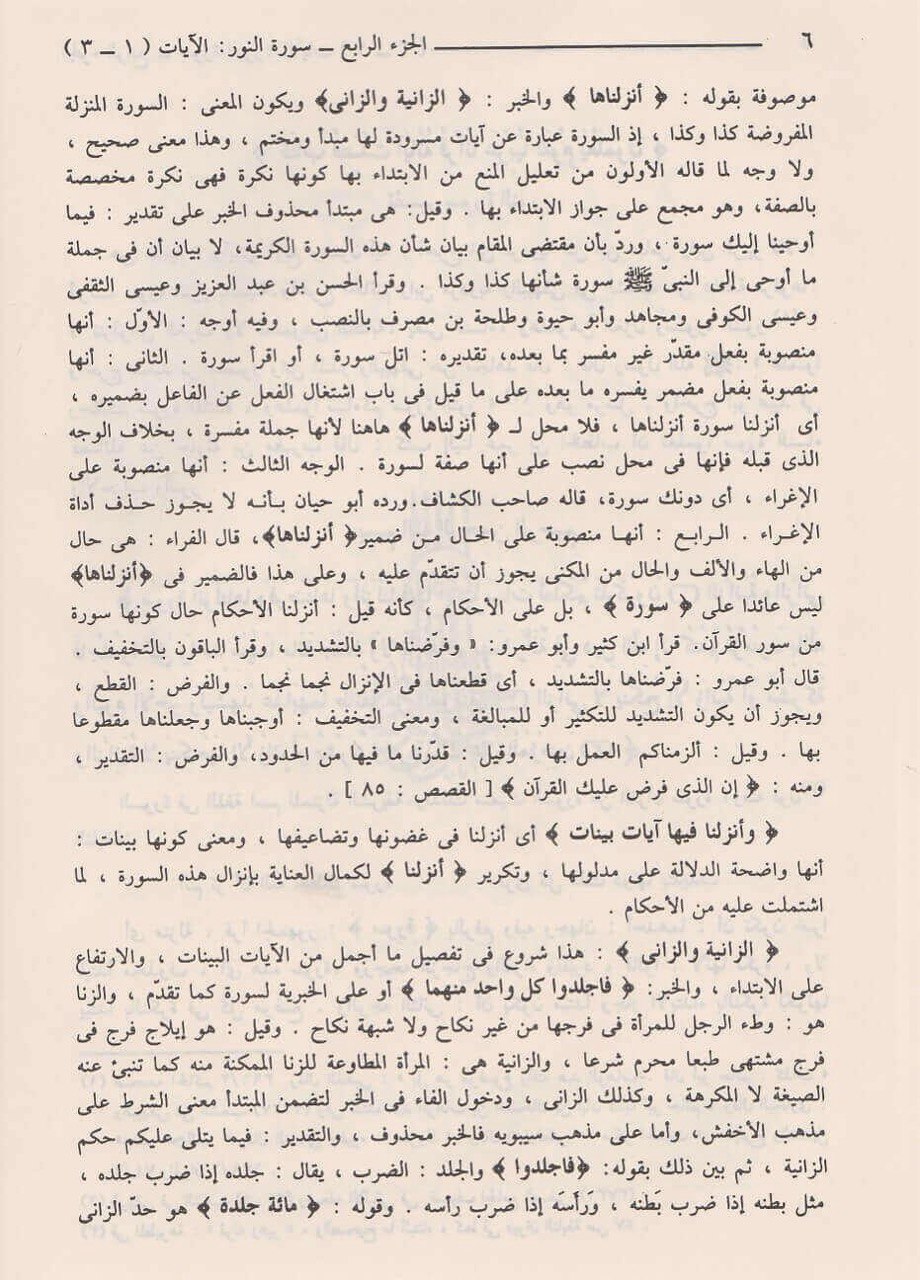 ٦ الجزء الرابع ــ سورة النور: الآيات ( ١ ــ ٣ )
موصوفة بقوله : ﴿ أنزلناها ﴾ والخبر : ﴿ الزانية والزانى﴾ ويكون المعنى : السورة المنزلة
المفروضة كذا وكذا ، إذ السورة عبارة عن آيات مسرودة لها مبدأ ومختم ، وهذا معنى صحيح ،
ولا وجه لما قاله الأولون من تعليل المنع من الابتداء بها كونها نكرة فهى نكرة مخصصة
بالصفة، وهو مجمع على جواز الابتداء بها . وقيل: هى مبتدأ محذوف الخبر على تقدير : فيما
أوحينا إليك سورة ، وردّ بأن مقتضى المقام بيان شأن هذه السورة الكريمة، لا بيان أن فى جملة
ما أوحى إلى النبىّ ﷺ سورة شأنها كذا وكذا . وقرأ الحسن بن عبد العزيز وعيسى الثقفى
وعيسى الكوفى ومجاهد وأبو حيوة وطلحة بن مصرف بالنصب ، وفيه أوجه : الأوّل : أنها
منصوبة بفعل مقدّر غير مفسر بما بعده، تقديره : اتل سورة ، أو اقرأ سورة . الثانى : أنها
منصوبة بفعل مضمر يفسره ما بعده على ما قيل فى باب اشتغال الفعل عن الفاعل بضميره ،
أى أنزلنا سورة أنزلناها ، فلا محل لـ ﴿ أنزلناها ﴾ هاهنا لأنها جملة مفسرة ، بخلاف الوجه
الذى قبله فإنها فى محل نصب على أنها صفة لسورة . الوجه الثالث : أنها منصوبة على
الإغراء ، أى دونك سورة، قاله صاحب الكشاف.ورده أبو حيان بأنه لا يجوز حذف أداة
الإغراء . الرابع : أنها منصوبة على الحال من ضمير﴿ أنزلناها﴾، قال الفراء : هى حال
من الهاء والألف والحال من المكنى يجوز أن تتقدّم عليه ، وعلى هذا فالضمير فى ﴿أنزلناها﴾
ليس عائدا على ﴿ سورة ﴾ ، بل على الأحكام ، كأنه قيل : أنزلنا الأحكام حال كونها سورة
من سور القرآن. قرأ ابن كثير وأبو عمرو: « وفرّضناها » بالتشديد ، وقرأ الباقون بالتخفيف .
قال أبو عمرو : فرّضناها بالتشديد ، أى قطعناها فى الإنزال نجما نجما . والفرض : القطع ،
ويجوز أن يكون التشديد للتكثير أو للمبالغة ، ومعنى التخفيف : أوجبناها وجعلناها مقطوعا
بها . وقيل : ألزمناكم العمل بها . وقيل : قدّرنا ما فيها من الحدود، والفرض : التقدير ،
ومنه : ﴿ إن الذى فرض عليك القرآن ﴾ [ القصص : ٨٥ ] .
﴿ وأنزلنا فيها آيات بينات ﴾ أى أنزلنا فى غضونها وتضاعيفها ، ومعنى كونها بينات :
أنها واضحة الدلالة على مدلولها ، وتكرير ﴿ أنزلنا ﴾ لكمال العناية بإنزال هذه السورة ، لما
اشتملت عليه من الأحكام .
﴿ الزانية والزانى ﴾ : هذا شروع فى تفصيل ما أجمل من الآيات البينات ، والارتفاع
على الابتداء ، والخبر: ﴿ فاجلدوا كل واحد منهما ﴾ أو على الخبرية لسورة كما تقدّم ، والزنا
هو : وطء الرجل للمرأة فى فرجها من غير نكاح ولا شبهة نكاح . وقيل : هو إيلاج فرج فى
فرج مشتهى طبعا محرم شرعا ، والزانية هى : المرأة المطاوعة للزنا الممكنة منه كما تنبئ عنه
الصيغة لا المكرهة ، وكذلك الزانى ، ودخول الفاء فى الخبر لتضمن المبتدأ معنى الشرط على
مذهب الأخفش، وأما على مذهب سيبويه فالخبر محذوف ، والتقدير : فيما يتلى عليكم حكم
الزانية ، ثم بين ذلك بقوله: ﴿فاجلدوا ﴾ والجلد : الضرب ، يقال : جلده إذا ضرب جلده ،
مثل بطنه إذا ضرب بَطنه ، وَرَأسَه إذا ضرب رأسه . وقوله : ﴿ مائة جلدة ﴾ هو حدّ الزانى